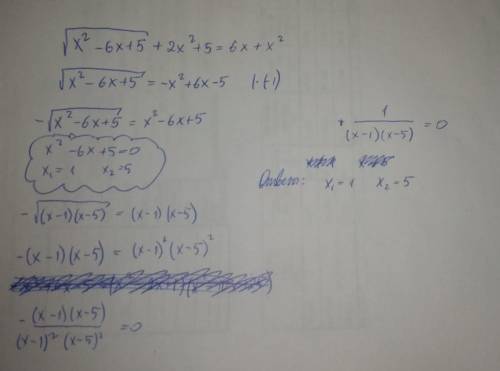 √(x² - 6x + 5) + 2x² + 5 = 6x + x²
√(x² - 6x + 5) = -x² + 6x - 5 (·(-1)
-√(x² - 6x + 5) = x² - 6x + 5
x² - 6x + 5 = 0
x₁ = 1 x₂ = 5
-√((x-1)(x-5)) = (x-1)(x-5)
-(x-1)(x-5) = (x-1)²(x-5)²
-(x-1)(x-5)/((x-1)²(x-5)²) = 0
· 1/((x-1)(x-5)) = 0
Ответ: x₁ = 1 x₂ = 5